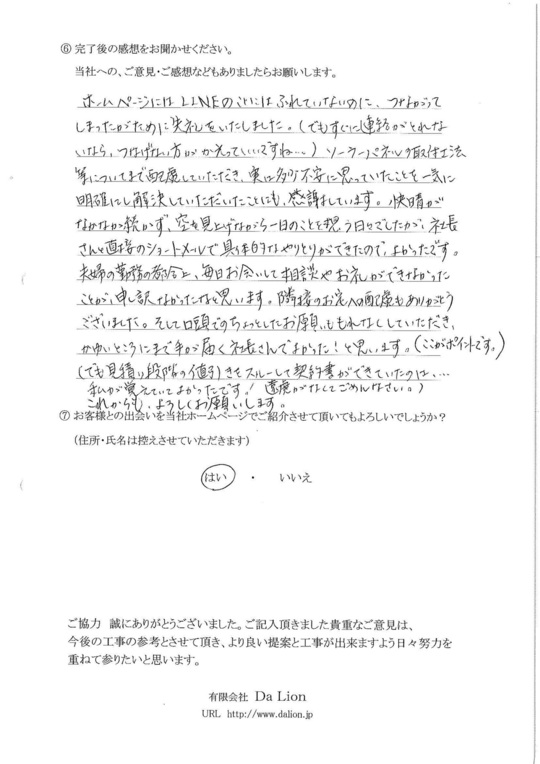 ⑥ 完了後の感想をお聞かせください。
当社への、ご意見・ご感想などもありましたらお願いします。
ホームページにはLINEのことにはふれていないのに、つながって
しまったがために失礼をいたしました。(でもすぐに連絡がとれな
いなら、つなげない方がかえっていいですね…。) ソーラーパネルの取付工法
等についてまで配慮していただき、実は多少不安に思っていたことを一気に
明確にし解決していただいたことにも、感謝しています。快晴が
なかなか続かず、空を見上げながら一日のことを想う日々でしたが、社長
さんと直接のショートメールで具体的なやりとりができたので、よかったです。
夫婦の勤務の都合上、毎日お会いして相談やお礼ができなかった
ことが、申し訳なかったなと思います。隣接のお宅への配慮もありがとう
ございました。そして口頭でのちょっとしたお願いももれなくしていただき、
かゆいところにまで手が届く社長さんでよかった!と思います。(ここがポイントです。)
(でも見積り段階の値引きをスルーして契約書ができていたのは、…
私が覚えていてよかったです! 遠慮がなくてごめんなさい。)
これからも、よろしくお願いします。
⑦ お客様との出会いを当社ホームページでご紹介させて頂いてもよろしいでしょうか?
(住所・氏名は控えさせていただきます)
はい ・ いいえ
ご協力 誠にありがとうございました。ご記入頂きました貴重なご意見は、
今後の工事の参考とさせて頂き、より良い提案と工事が出来ますよう日々努力を
重ねて参りたいと思います。
有限会社 Da Lion
URL http://www.dalion.jp